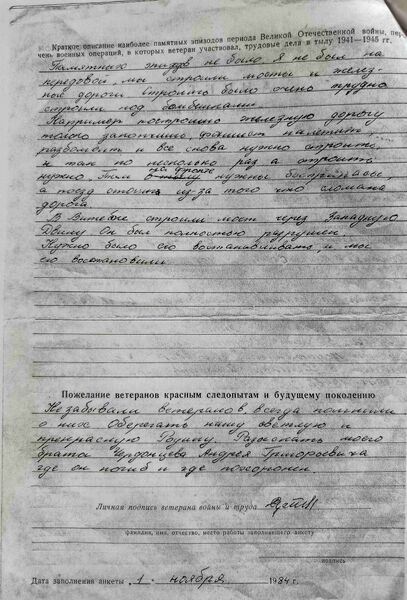 Краткое описание наиболее памятных эпизодов периода Великой Отечественной войны, пере-
чень военных операций, в которых ветеран участвовал, трудовые дела в тылу 1941—1945 гг.
Памятных эпизодов не было. Я не был на
передовой, мы строили мосты и желез-
ные дороги. Строить было очень трудно
строили под бомбежками.
Например построили железную дорогу
только закончили, фашист налетит
разбомбит и все снова нужно строить,
и так по несколько раз а строить
нужно. Там на фронте нужны боеприпасы,
а поезд стоит из-за того что сломана
дорога.
В Витебске строили мост через Западную
Двину Он был полностью разрушен.
Нужно было его восстанавливать, и мы
его восстановили.
Пожелание ветеранов красным следопытам и будущему поколению
Не забывали ветеранов, всегда помнили
о них Оберегать нашу светлую и
прекрасную Родину. Разыскать моего
брата Андрея Григорьевича
где он погиб и где похоронен.
Личная подпись ветерана войны и труда
фамилия, имя, отчество, место работы заполнявшего анкету
подпись
Дата заполнения анкеты 1. ноября 1984 г.